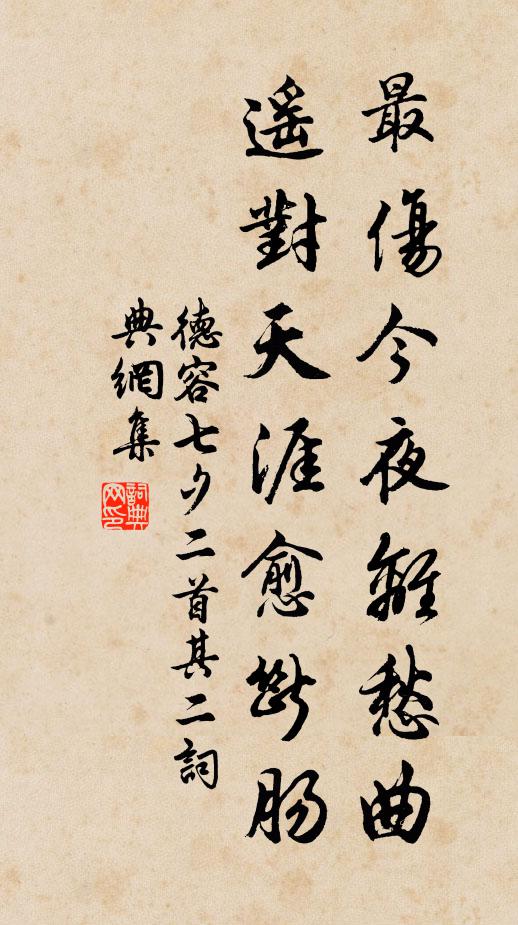 最傷今夜離愁曲
遥對天涯愈斷腸
德容七夕二首其二詞
典網集
詞典
网印